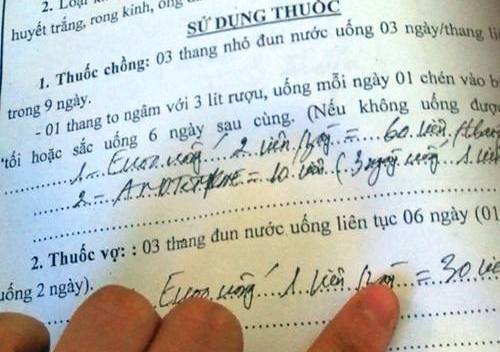 2. Loại
huyết trắng, rong kinh, ống
SỬ DỤNG THUỐC
1. Thuốc chồng: 03 thang nhỏ đun nước uống 03 ngày/thang li
trong 9 ngày.
- 01 thang to ngâm với 3 lít rượu, uống mỗi ngày 01 chén vào b
tối hoặc sắc uống 6 ngày sau cùng. (Nếu không uống đượ
1 = uống 2 viên / ngày = 60 viên
2 = = 10 viên ( 3 ngày uống 1 viên
2. Thuốc vợ: : 03 thang đun nước uống liên tục 06 ngày (01
uống 2 ngày).
uống 1 viên / ngày = 30 viê